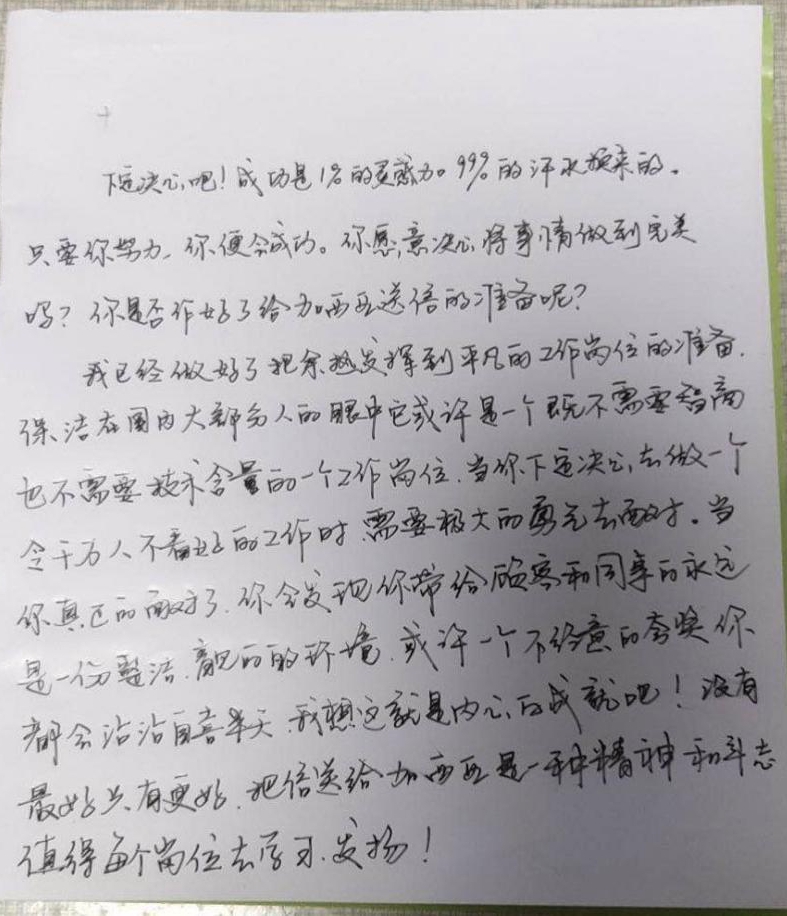 下定决心吧！成功是1%的灵感加99%的汗水换来的。
只要你努力，你便会成功。你愿意决心将事情做到完美
吗？你是否作好了给加西亚送信的准备呢？
我已经做好了把余热发挥到平凡的工作岗位的准备.
保洁在国内大部分人的眼中它或许是一个既不需要智商
也不需要技术含量的一个工作岗位.当你下定决心去做一个
令千万人不看好的工作时,需要极大的勇气去面对。当
你真正的面对了.你会发现你带给顾客和同事的永远
是一份整洁.的环境.或许一个不经意的夸奖你
都会沾沾自喜半天.我想这就是内心的成就吧！没有
最好只有更好.把信送给加西亚是一种精神和斗志
值得每个岗位去学习.发扬！